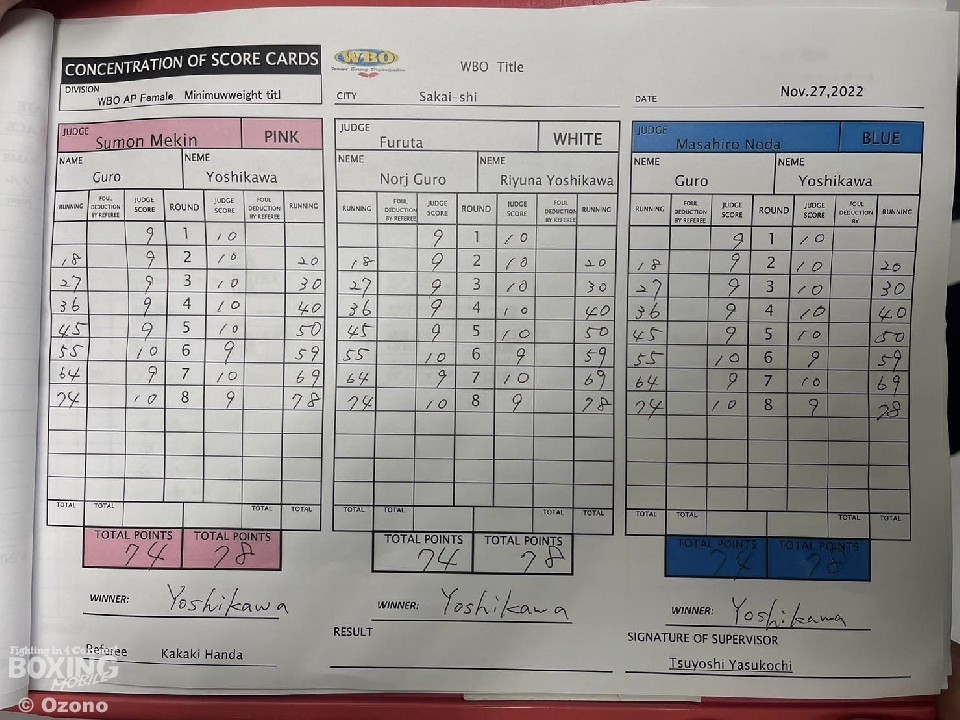 CONCENTRATION OF SCORE CARDS
WBO
World Boxing Organization
WBO Title
DIVISION
WBO AP Female Minimuwweight titl
CITY
Sakai-shi
DATE
Nov.27,2022
JUDGE
Sumon Mekin
PINK
NAME
Guro
NEME
Yoshikawa
RUNNING
FOUL DEDUCTION BY REFEREE
JUDGE SCORE
ROUND
JUDGE SCORE
FOUL DEDUCTION BY REFEREE
RUNNING
9 1 10
18 9 2 10 20
27 9 3 10 30
36 9 4 10 40
45 9 5 10 50
55 10 6 9 59
64 9 7 10 69
74 10 8 9 78
TOTAL TOTAL TOTAL TOTAL
TOTAL POINTS TOTAL POINTS
74 78
WINNER: Yoshikawa
Referee Kakaki Handa
JUDGE
Furuta
WHITE
NEME
Norj Guro
NEME
Riyuna Yoshikawa
RUNNING
FOUL DEDUCTION BY REFEREE
JUDGE SCORE
ROUND
JUDGE SCORE
FOUL DEDUCTION BY REFEREE
RUNNING
9 1 10
18 9 2 10 20
27 9 3 10 30
36 9 4 10 40
45 9 5 10 50
55 10 6 9 59
64 9 7 10 69
74 10 8 9 78
TOTAL TOTAL TOTAL TOTAL
TOTAL POINTS TOTAL POINTS
74 78
WINNER: Yoshikawa
RESULT
JUDGE
Masahiro Noda
BLUE
NEME
Guro
NEME
Yoshikawa
RUNNING
FOUL DEDUCTION BY REFEREE
JUDGE SCORE
ROUND
JUDGE SCORE
FOUL DEDUCTION BY
RUNNING
9 1 10
18 9 2 10 20
27 9 3 10 30
36 9 4 10 40
45 9 5 10 50
55 10 6 9 59
64 9 7 10 69
74 10 8 9 78
TOTAL TOTAL TOTAL TOTAL
TOTAL POINTS TOTAL POINTS
74 78
WINNER: Yoshikawa
SIGNATURE OF SUPERVISOR
Tsuyoshi Yasukochi
Fighting in 4 Corner
BOXING
MOBILE
© Ozono